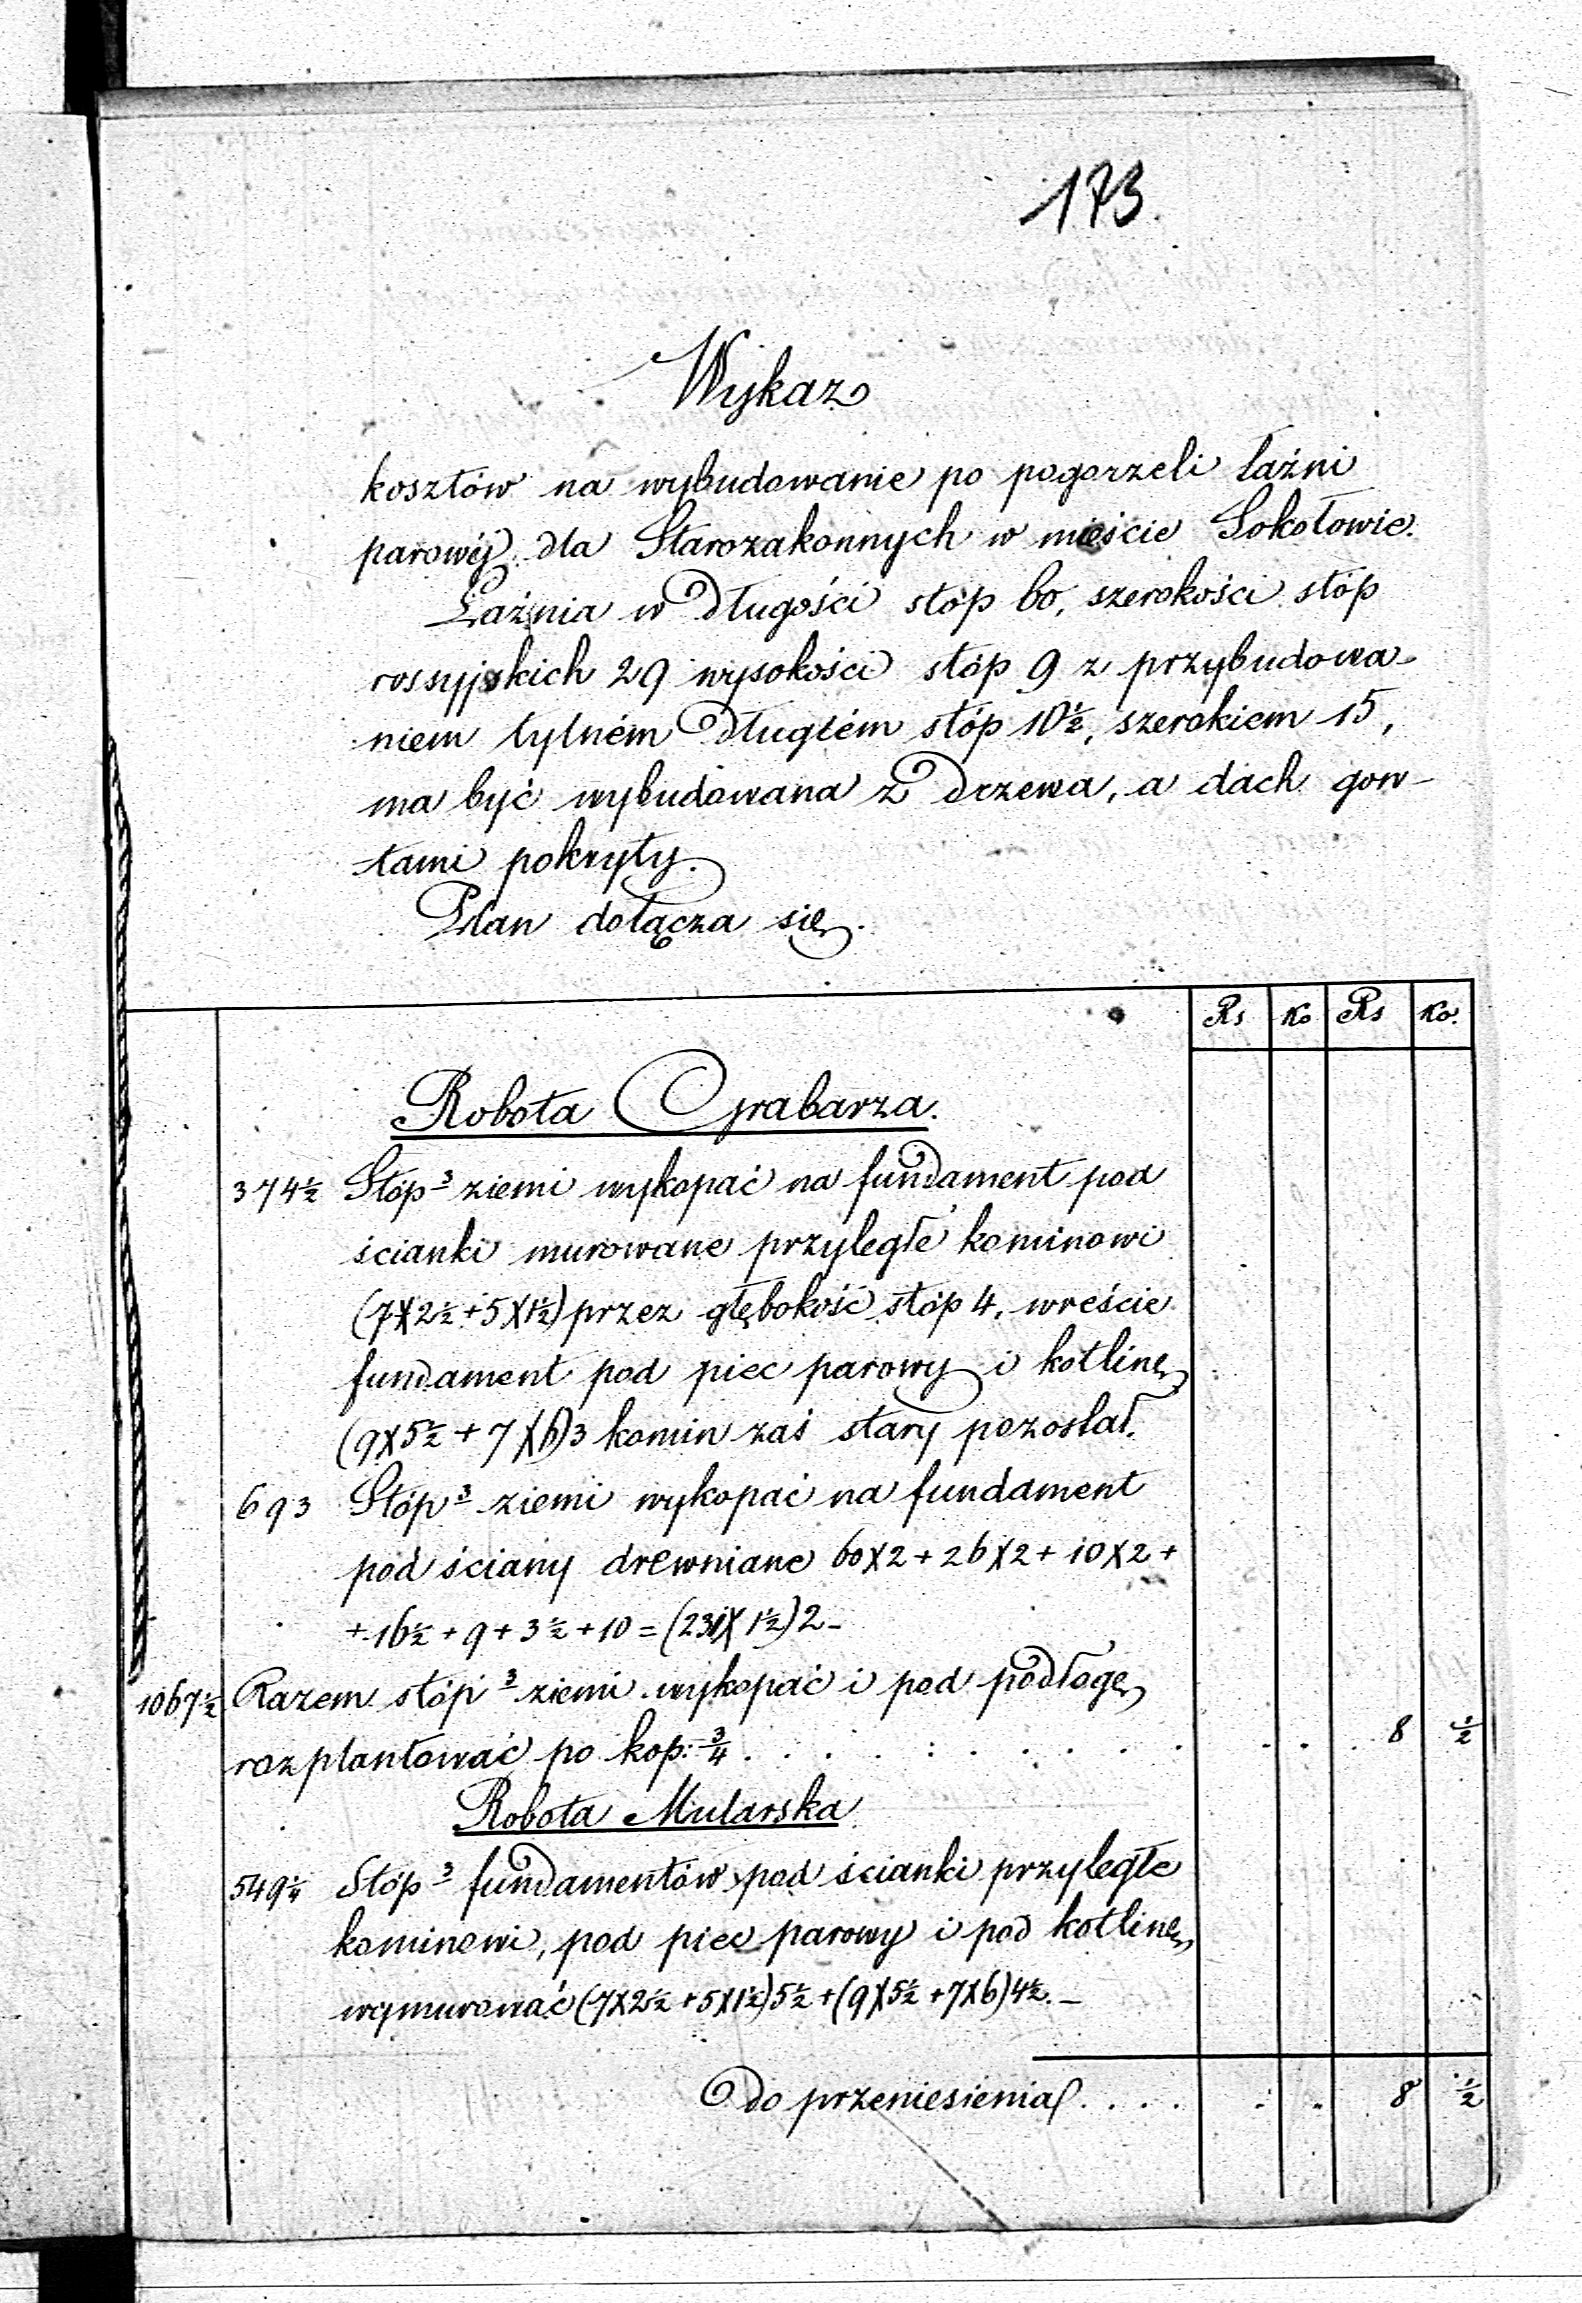 173.
Wykaz
kosztów na wybudowanie po pogorzeli łaźni
parowéj dla Starozakonnych w mieście Sokołowie.
Łaźnia w długości stóp 60, szerokości stóp
rossyjskich 29 wysokości stóp 9 z przybudowa-
niem tylném długiém stóp 10½, szerokiem 15,
ma być wybudowana z drzewa, a dach gon-
tami pokryty.
Plan dołącza się.
Rs Ko Rs Ko.
Robota Grabarza.
374½ Stóp³ ziemi wykopać na fundament pod
ścianki murowane przyległe kominowi
(7X2½+5X1½) przez głębokość stóp 4, wreście
fundament pod piec parowy i kotlinę
(9X5½+7X6)3 komin zaś stary pozostał.
693 Stóp³ ziemi wykopać na fundament
pod ściany drewniane 60X2+26X2+10X2+
+16½+9+3½+10=(231X1½)2-
1067½ Razem stóp³ ziemi wykopać i pod podłogę
rozplantować po kop: ¾ . . . . : . . . . . . . . . 8 ½
Robota Mularska
549¼ Stóp³ fundamentów pod ścianki przyległe
kominowi, pod piec parowy i pod kotlinę
wymurować (7X2½+5X1½)5½+(9X5½+7X6)4½.-
do przeniesienia . . . . . . 8 ½